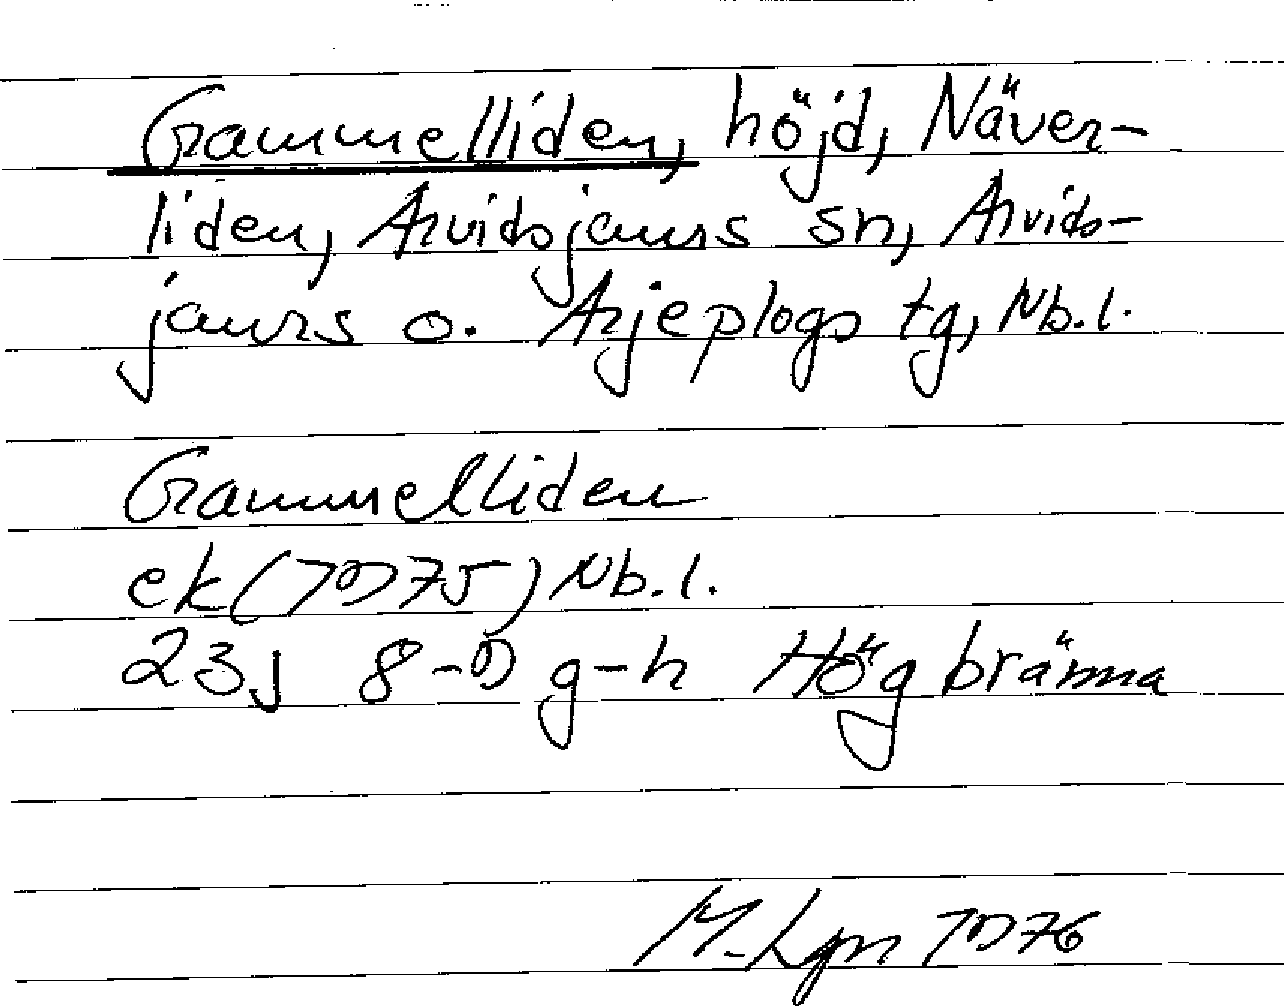 Gammelliden, höjd, Näver-
liden, Arvidsjaurs sn, Arvids-
jaurs o. Arjeplogs tg, Nb.l.
Gammelliden
ek (1975) Nb.l.
23J 8-9 g-h Högbränna
M. Lgn 1976